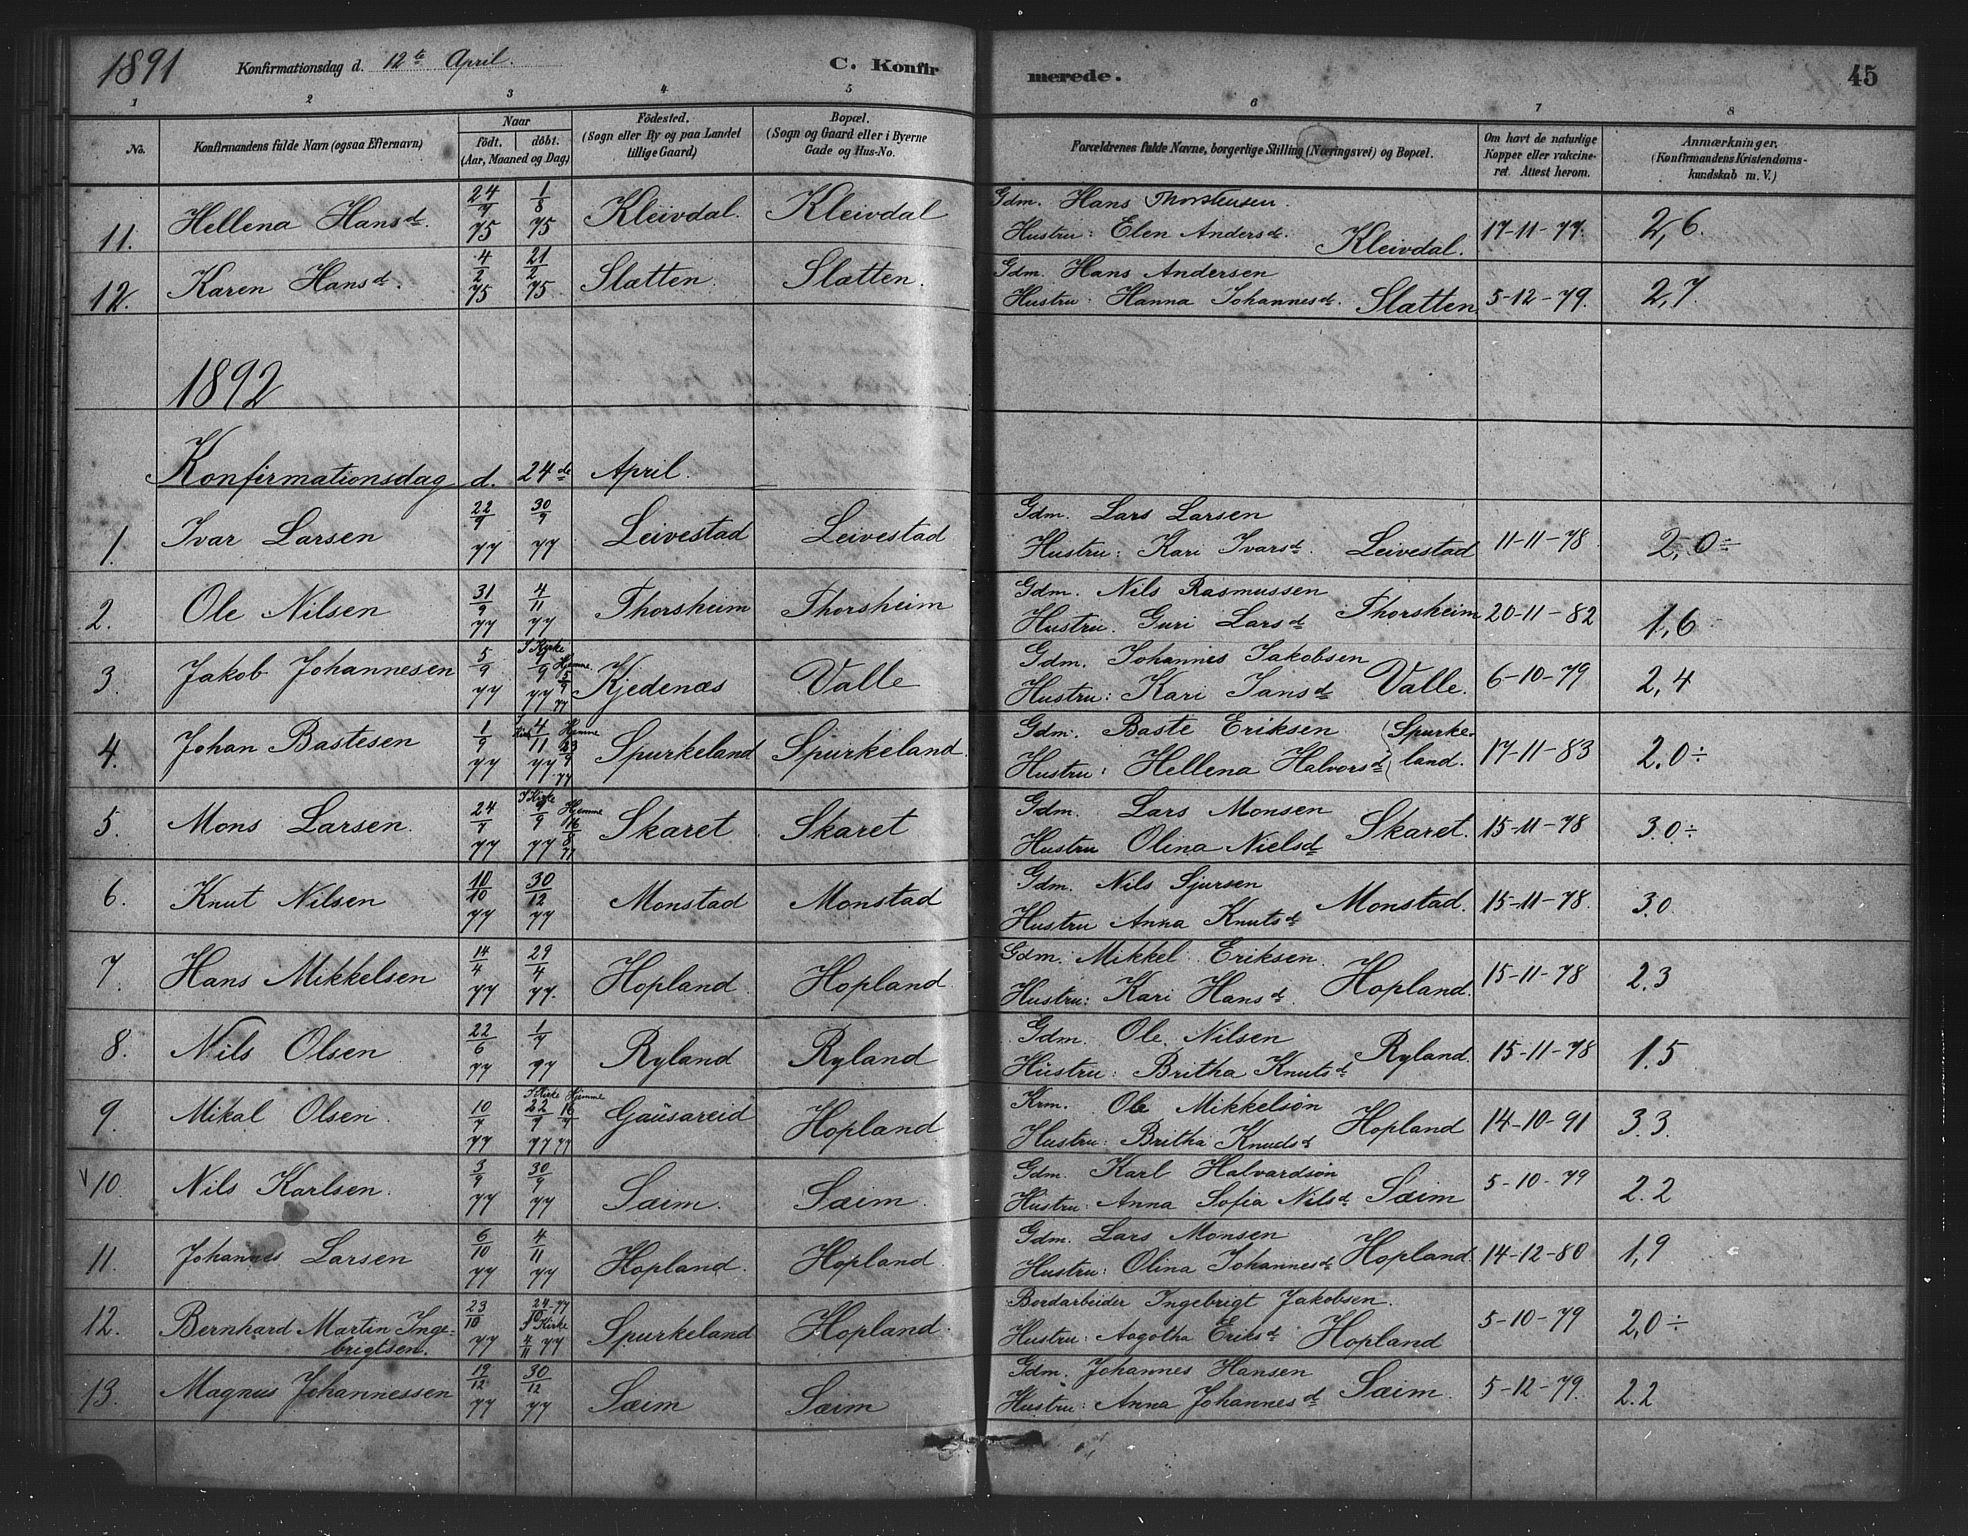 1891 Konfirmationsdag d. 12te April. C. Konfirmerede. 45
1 2 3 4 5 6 7 8
No. Konfirmandens fulde Navn (ogsaa Efternavn) Naar födt. döbt. (Aar, Maaned og Dag) Födested. (Sogn eller By og paa Landet tillige Gaard) Bopæl. (Sogn og Gaard eller i Byerne Gade og Hus-No. Forældrenes fulde Navne, borgerlige Stilling (Næringsvei) og Bopæl. Om havt de naturlige Kopper eller vakcineret. Attest herom. Anmærkninger. (Konfirmandens Kristendomskundskab m. V.)
11. Hellena Hansdr. 24/7 75 1/8 75 Kleivdal. Kleivdal Gdm. Hans Thorsteinsen.
Hustru: Elen Andersdr. Kleivdal. 17-11-77. 2,6.
12. Karen Hansdr. 4/2 75 21/2 75 Slætten. Slætten. Gdm. Hans Andersen
Hustru: Hanna Johannesdr. Slætten. 5-12-79. 2,7.
1892
Konfirmationsdag d. 24de April.
1. Ivar Larsen 22/9 77 30/9 77 Leivestad Leivestad Gdm. Lars Larsen
Hustru: Kari Ivarsdr. Leivestad 11-11-78. 2,0÷
2. Ole Nilsen 31/9 77 4/11 77 Thorsheim Thorsheim Gdm. Nils Rasmussen
Hustru. Guri Larsdr Thorsheim 20-11-82 1,6
3. Jakob Johannesen 5/9 77 I Kirke 9/9 77 Hjemme 5/9 77 Kjedenæs Valle Gdm. Johannes Jakobsen
Hustru: Kari Jansdr Valle. 6-10-79 2,4
4. Johan Bastesen 1/9 77 I Kirke 4/11 77 Hjemme 23/9 77 Spurkeland Spurkeland. Gdm. Baste Eriksen
Hustru: Hellena Halvorsdr Spurkeland. 17-11-83 2.0÷
5. Mons Larsen. 24/7 77 I Kirke 9/9 77 Hjemme 16/8 77 Skaret Skaret Gdm. Lars Monsen
Hustru Olina Nielsdr Skaret. 15-11-78 3.0÷
6. Knut Nilsen 10/10 77 30/12 77 Monstad Monstad Gdm. Nils Sjursen
Hustru Anna Knutsdr Monstad. 15-11-78. 3.0.
7. Hans Mikkelsen 14/4 77 29/4 77. Hopland. Hopland. Gdm. Mikkel Eriksen.
Hustru: Kari Hansdr. Hopland. 15-11-78 2.3
8. Nils Olsen 22/6 77 1/7 77 Ryland Ryland Gdm. Ole Nilsen
Hustru: Britha Knutsdr Ryland. 15-11-78 1.5
9. Mikal Olsen. 10/7 77 I Kirke 22/7 77 Hjemme 16/7 77 Gausareid Hopland Krm. Ole Mikkelsön
Hustru: Britha Knudsdr Hopland 14-10-91 3.3.
10. Nils Karlsen. 3/9 77 30/9 77 Sæim. Sæim. Gdm. Karl Halvardsön
Hustru: Anna Sofia Nilsdr Sæim 5-10-79 2.2
11. Johannes Larsen 6/10 77 4/11 77 Hopland. Hopland. Gdm. Lars Monsen
Hustru: Olina Johannesdr Hopland. 14-12-80 1,9
12. Bernhard Martin Inge-
brigtsen. 23/10 77 24/10-77 I Kirke 4/11 77 Spurkeland Hopland. Bordarbeider Ingebrigt Jakobsen.
Hustru: Aagotha Eriksdr Hopland 5-10-79 2,0÷
13. Magnus Johannessen 19/12 77 30/12 77 Sæim Sæim Gdm. Johannes Hansen
Hustru: Anna Johannesdr Sæim. 5-12-79. 2.2